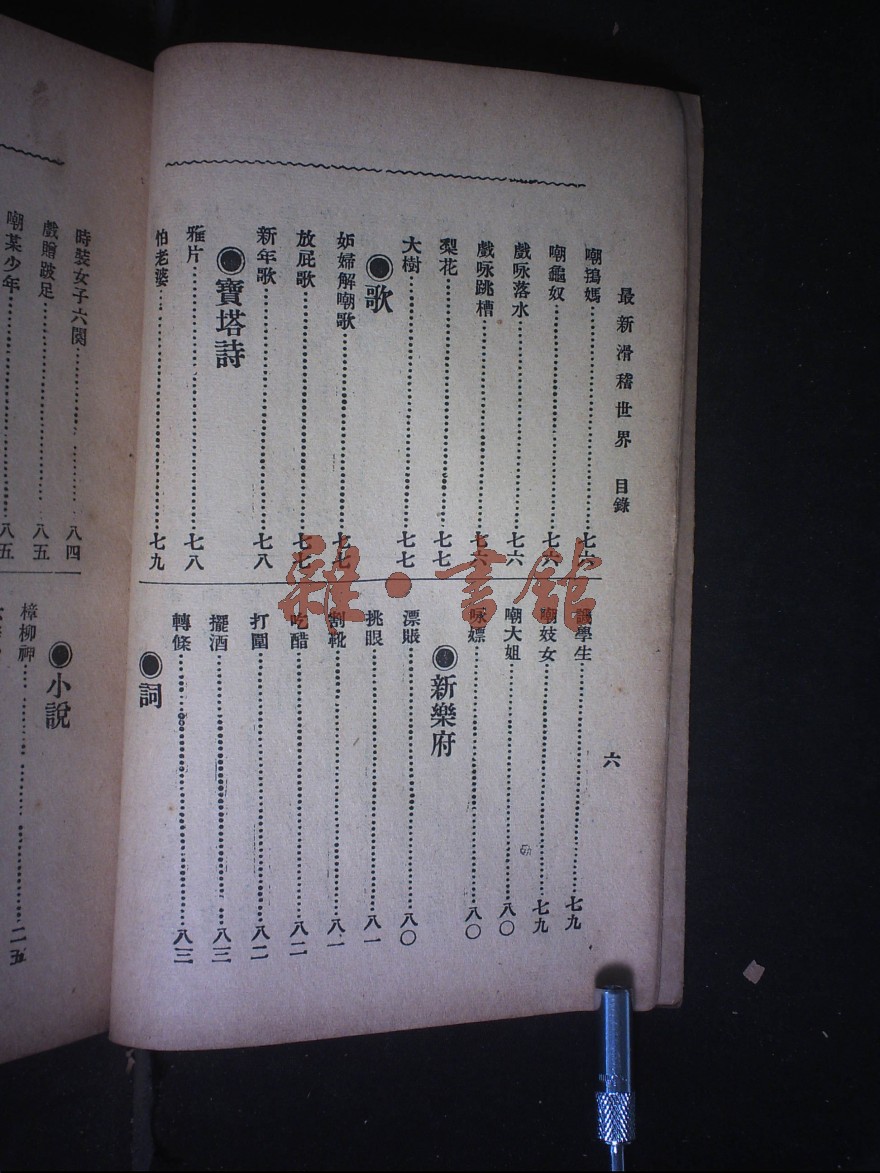 最新滑稽世界 目錄
六
嘲鴇媽 七六
嘲龜奴 七六
戲咏落水 七六
戲咏跳槽 七六
梨花 七七
大樹 七七
◉歌
妬婦解嘲歌 七七
放屁歌 七七
新年歌 七八
◉寶塔詩
雅片 七八
怕老婆 七九
學生 七九
嘲妓女 七九
嘲大姐 八〇
咏嫖 八〇
◉新樂府
漂賬 八〇
挑眼 八一
割靴 八一
吃醋 八二
打圍 八二
擺酒 八三
轉條 八三
◉詞
時裝女子六闋 八四
戲贈跛足 八五
嘲某少年 八五
◉小說
樟柳神 二五
雜·書館